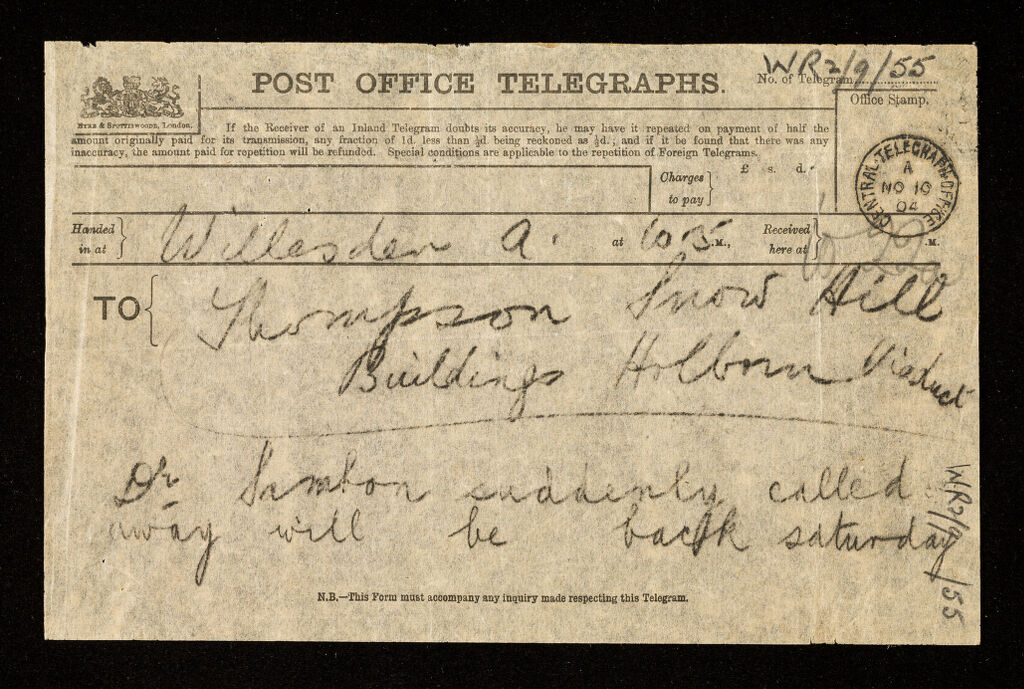 WR2/9/55
POST OFFICE TELEGRAPHS.
No. of Telegram
Office Stamp.
EYRE & SPOTTISWOODE, London.
If the Receiver of an Inland Telegram doubts its accuracy, he may have it repeated on payment of half the
amount originally paid for its transmission, any fraction of 1d. less than ½d. being reckoned as ½d.; and if it be found that there was any
inaccuracy, the amount paid for repetition will be refunded. Special conditions are applicable to the repetition of Foreign Telegrams.
CENTRAL TELEGRAPH OFFICE
A
NO 10
04
Charges
to pay
£ s. d.
Handed
in at
Willesden A.
at 10.5 .M.,
Received
here at
.M.
TO
Thompson Snow Hill
Buildings Holborn Viaduct
Dr Sambon suddenly called
away will be back saturday
WR2/9/55
N.B.—This Form must accompany any inquiry made respecting this Telegram.